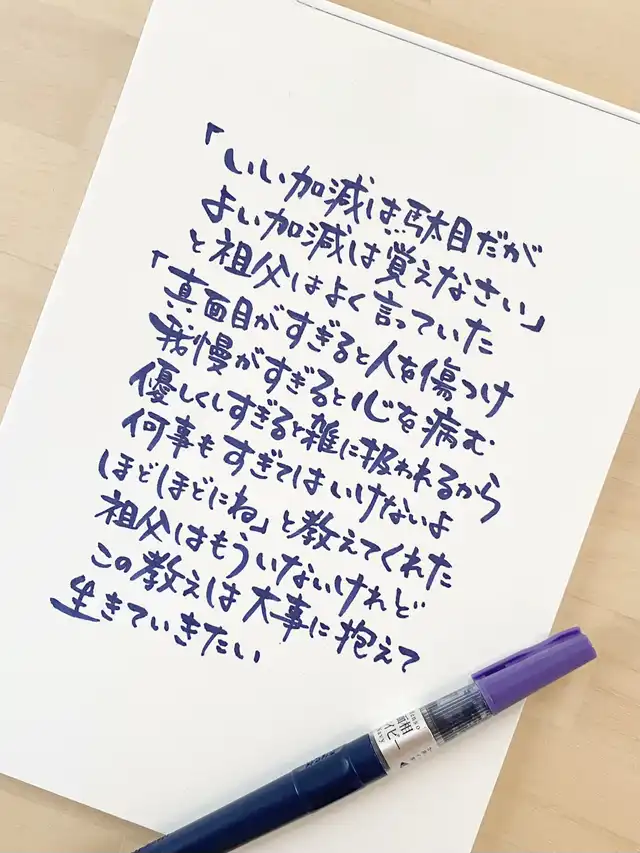 「いい加減は駄目だが
よい加減は覚えなさい」
と祖父はよく言っていた
「真面目がすぎると人を傷つけ
我慢がすぎると心を病む
優しくしすぎると雑に扱われるから
何事もすぎてはいけないよ
ほどほどにね」と教えてくれた
祖父はもういないけれど
この教えは大事に抱えて
生きていきたい
面相
イビー